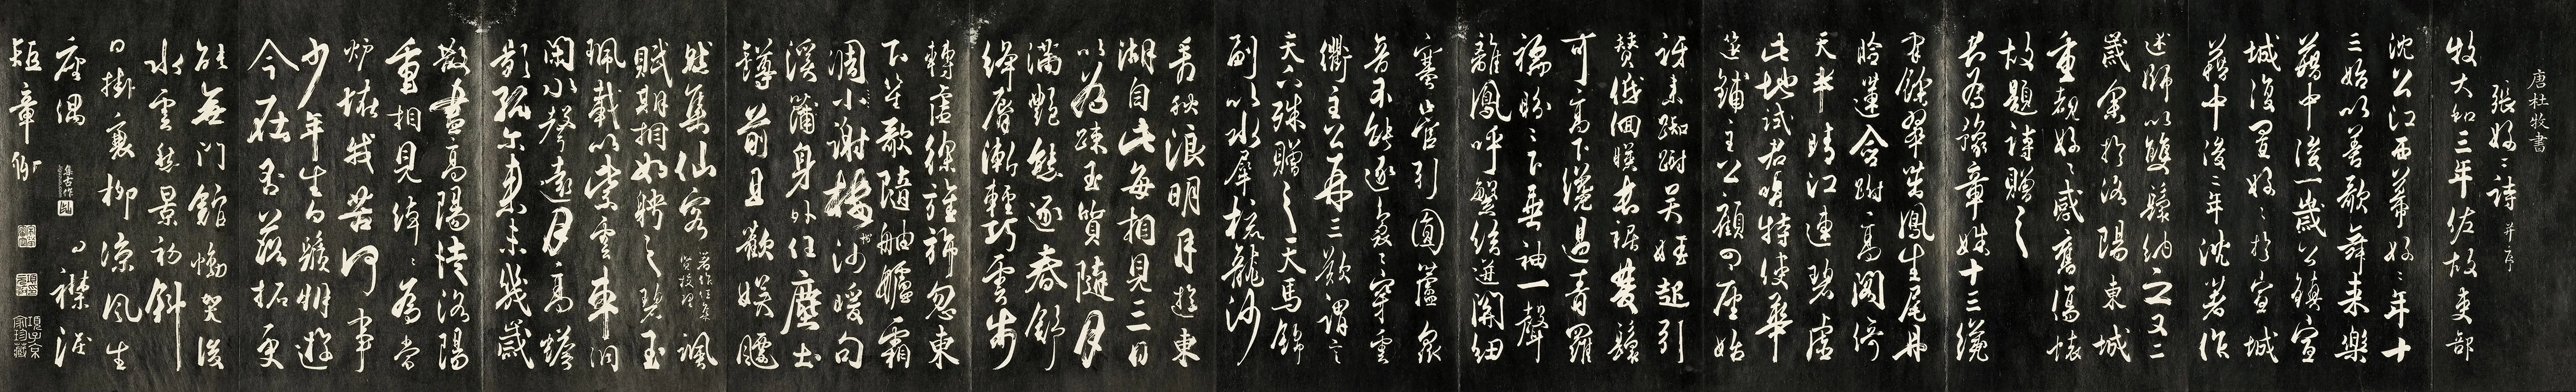 唐杜牧書
張好〻詩 并序
牧大和三年佐故吏部
沈公江西幕好〻年十
三始以善歌舞來樂
籍中後一歲公鎮宣
城復置好〻於宣城
籍中後二年沈著作
述師以雙鬟納之又二
歲余於洛陽東城
重覩好〻感舊傷懷
故題詩贈之
君為豫章姝十三纔
有餘翠茁鳳生尾丹
臉蓮含跗高閣倚
天半晴江連碧虛
此地試君唱特使華
筵鋪主公顧四座始
訝來踟躕吳娃起引
贊低佪暎長裾雙鬟
可高下纔過青羅
襦盼〻下垂袖一聲
離鳳呼繁絃迸關紐
塞管引圓蘆衆
音不能逐裊〻穿雲
衢主公再三歎謂言
天下殊贈之天馬錦
副以水犀梳龍沙
看秋浪明月遊東
湖自此每相見三日
以為踈玉質隨月
滿艷態逐春舒
絳脣漸輕巧雲步
轉虛徐旌旆忽東
下笙歌隨舳艫霜
凋小謝樓樹沙暖句
溪蒲身外任塵土
罇前且歡娛飄
然集仙客 著作任集賢校理 諷
賦期相如聘之碧玉
珮載以紫雲車洞
閉水聲遠月高蟾
影孤尒來未幾歲
散盡高陽徒洛陽
重相見綽〻為當
壚怪我苦何事
少年生白髭朋遊
今在否落拓更
能無門館慟哭後
水雲愁景初斜
日掛衰柳涼風生
座隅 襟淚
短章聊
項子京家珍藏